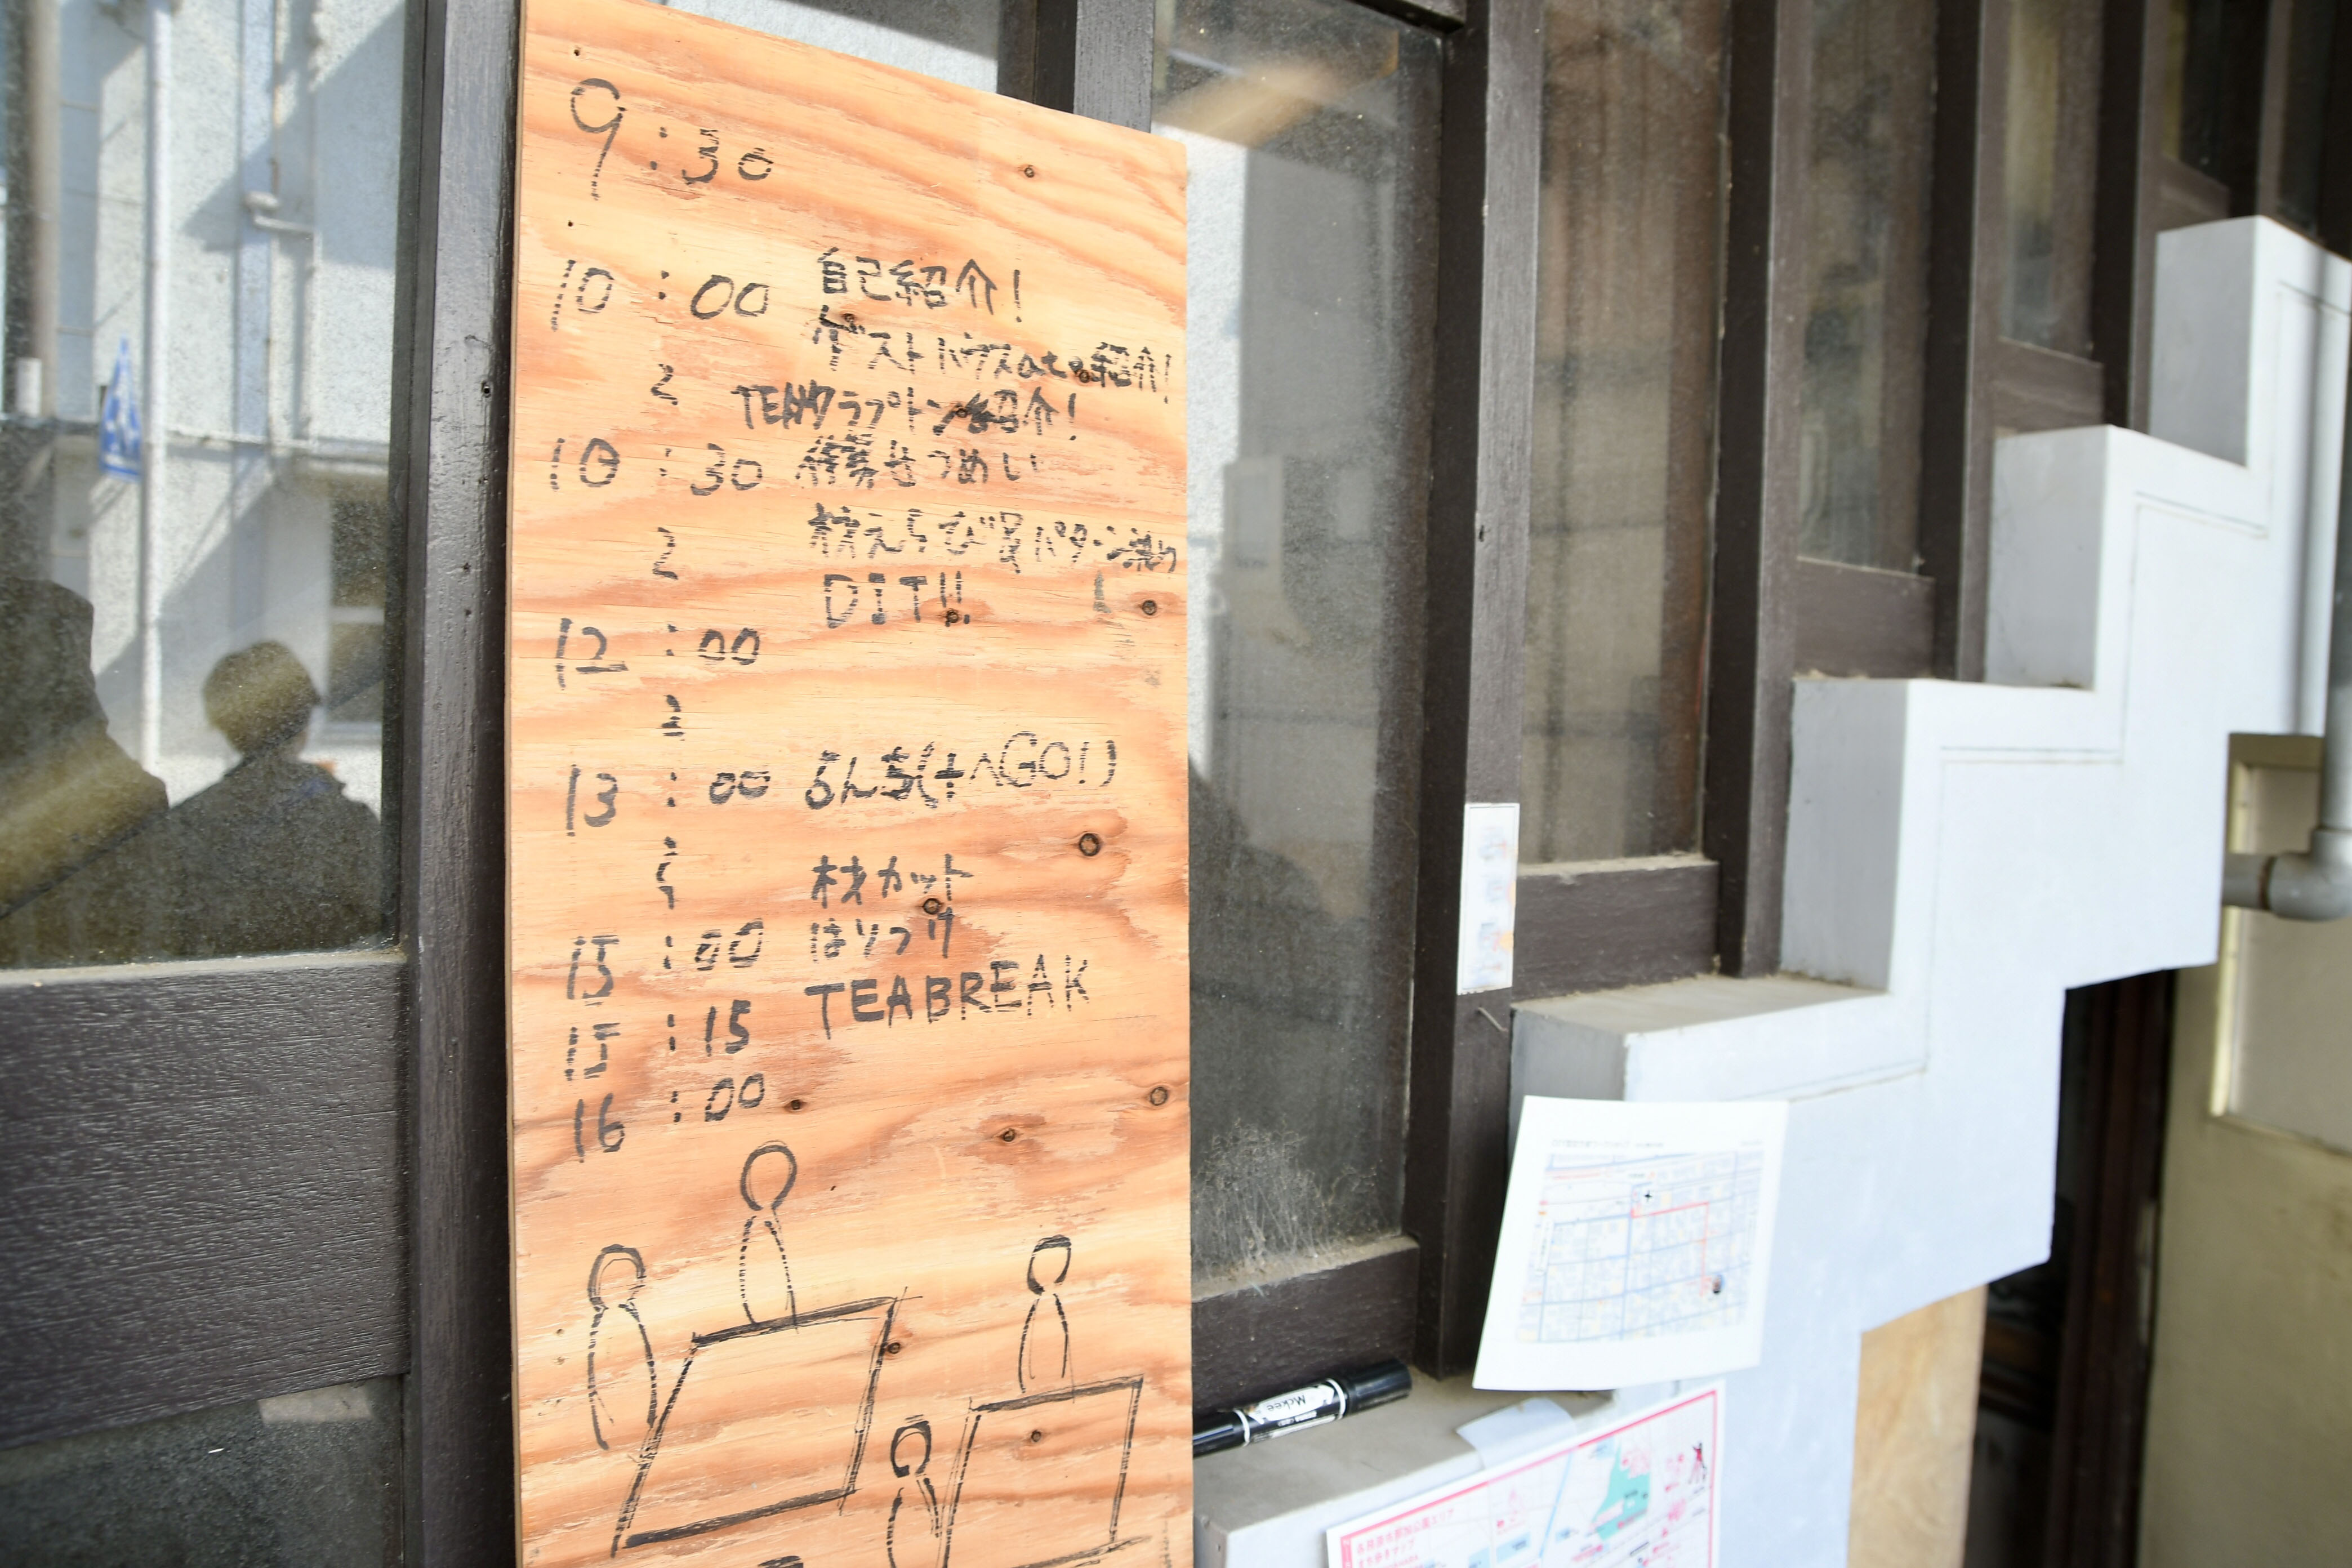 9:30
10:00 自己紹介!
ゲストハウスatの紹介!
〜 TEAMクラプトン紹介!
10:30 作業せつめい
〜 材えらび 貼パターン
DIT!!
12:00
〜
13:00 らんち(+へGO!)
〜 材カット
15:00 はりつけ
15:15 TEA BREAK
16:00
Mckee